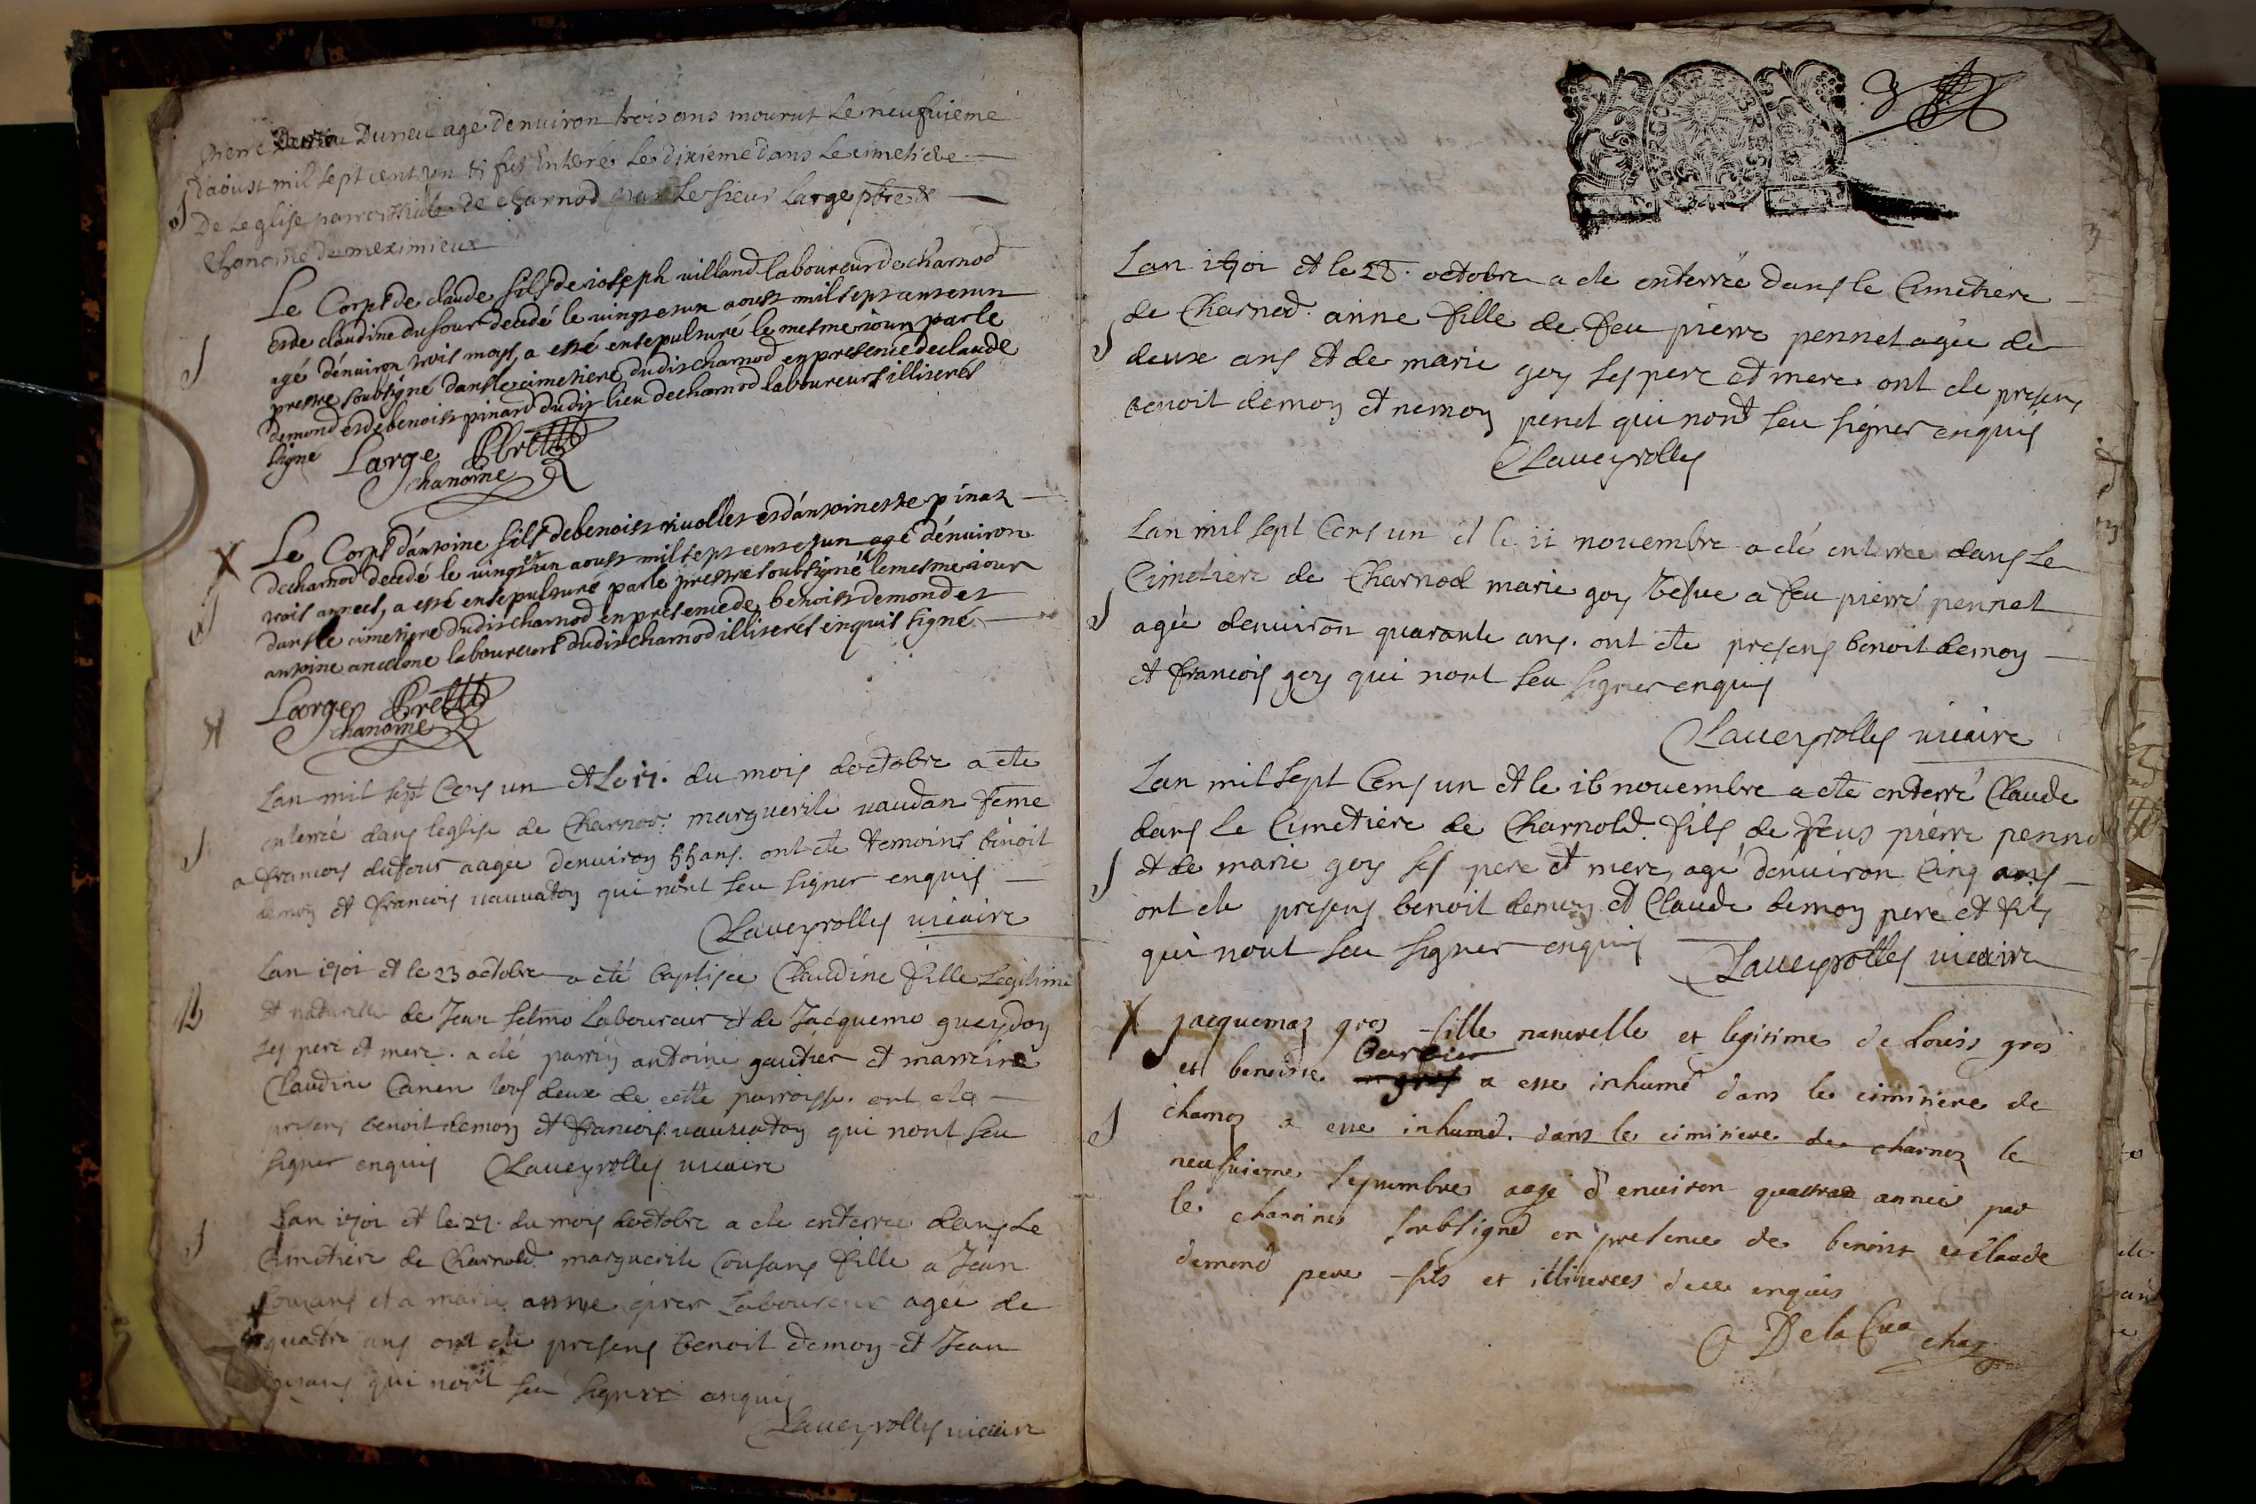 pierre Duneu agé denuiron trois ans mourut Le neufuieme
d'aoust mil sept cent un & fut Enterré Le dixieme dans Le cimetiere
De Leglise parroissiale de charnod par Le sieur Large pbre &
Chanoine de meximieux
Le Corps de claude fils de ioseph uilland laboureur de charnod
et de claudine dufour decedé le uingt et un aoust mil sept cent et un
agé dénuiron trois moys, a esté ensepulturé le mesme iour par le
prestre soubsigné dans le cimetiere dudit charnod en presence de claude
demond et de benoist pinard dudit lieu de charnod laboureurs illiterés
signe Large Pbre
chanoine
Le Corps d'antoine fils de benoist riuollet et d'antoinette pinat
de charnod decedé le uingt et un aoust mil sept cent et un agé dénuiron
trois annees, a esté ensepulturé par le prestre soubsigné le mesme iour
dans le cimetiere dudit charnod en presence de benoist demond et
antoine ancelme laboureurs dudit charnod illiterés enquis signé
Large Pbre
chanoine
Lan mil sept Cens un et Le 17. du mois doctobre a ete
enterrée dans leglise de Charnod. marguerite vaudan feme
a francois dufour aagée denuiron 55 ans. ont ete temoins benoit
demon et francois vauuaton qui nont seu signer enquis
Laueyrolles uicaire
Lan 1701 et le 23 octobre a eté baptisée Claudine fille Legitime
et naturelle de Jean Laboureur et de Jacquemo gueydon
ses pere et mere. a eté parrin antoine gautier et marreine
Claudine tous deux de cette parroisse. ont ete
presens benoit demon et francois vauuaton qui nont seu
signer enquis Laueyrolles uicaire
Lan 1701 et le 27. du mois doctobre a ete enterrée dans Le
Cimetiere de Charnold marguerite Cousans fille a Jean
Cousans et a marie anne Laboureur agée de
quatre ans ont ete presens Benoit demon et Jean
qui nont seu signer enquis
Laueyrolles uicaire
3
Lan 1701 et le 28. octobre a ete enterrée dans le Cimetiere
de Charnod. anne fille de feu pierre pennet agée de
deux ans et de marie goy ses pere et mere ont ete presens
Benoit demon et penet qui nont seu signer enquis
Laueyrolles
Lan mil sept Cens un et le 11 nouembre a eté enterrée dans Le
Cimetiere de Charnod marie goy vefue a feu pierre pennet
agée denuiron quarante ans. ont ete presens benoit demon
et francois goy qui nont seu signer enquis
Laueyrolles uicaire
Lan mil sept Cens un et le 16 nouembre a ete enterré Claude
dans Le Cimetiere de Charnold. fils de feus pierre
et de marie goy ses pere et mere, agé denuiron Cinq ans
ont ete presens benoit demon et Claude demon pere et fils
qui nont seu signer enquis Laueyrolles uicaire
jacquemaz gros fille naturelle et legitime de Louis gros
et benoitte a esse inhumé dans le cimitiere de
charnoz a esse inhumé. dans le cimitiere de charnoz le
neufuieme septembre aage d'enuiron quattre année par
le chanoine soubsigné en presence de benoist et Claude
demond pere fils et illiterees enquis
De la Cua chaz